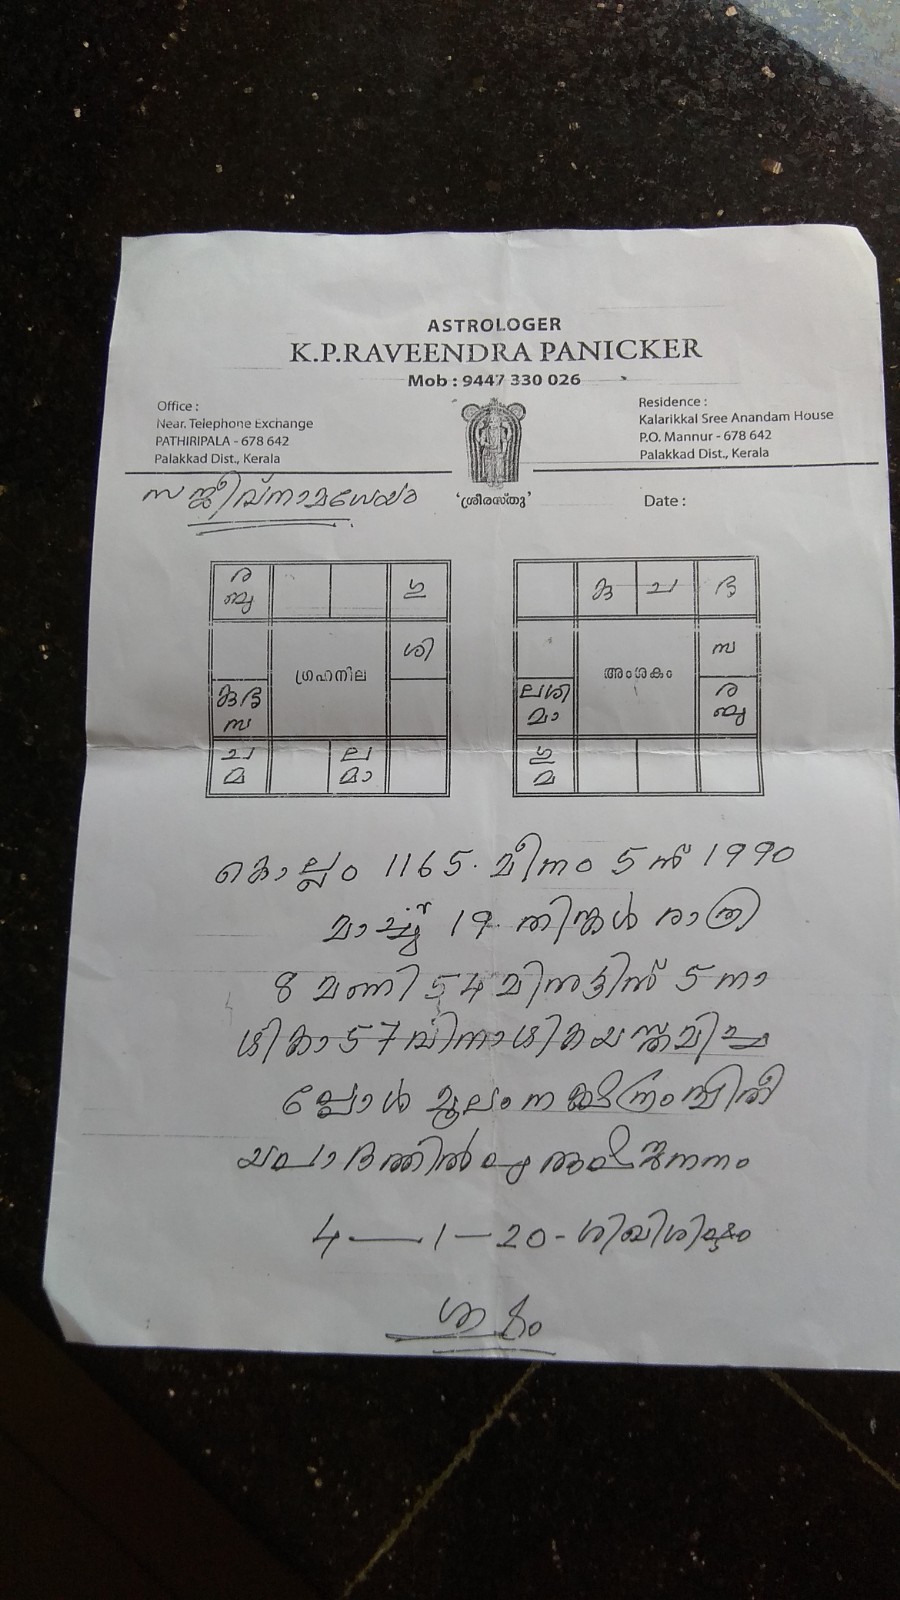 ASTROLOGER
K.P.RAVEENDRA PANICKER
Mob : 9447 330 026
Office :
Near. Telephone Exchange
PATHIRIPALA - 678 642
Palakkad Dist., Kerala
Residence :
Kalarikkal Sree Anandam House
P.O. Mannur - 678 642
Palakkad Dist., Kerala
'ശ്രീരസ്തു'
Date :
സഞ്ജീവ്നാമധേയം
ര
ബു
ഗു
ശി
ഗ്രഹനില
കു ശു
സ
ച
മ
ല
മാ
കു
ച
ശു
സ
അംശകം
ല ശി
മാ
ര
ബു
ഗു
മ
കൊല്ലം 1165. മീനം 5 ന് 1990
മാർച്ച് 19. തിങ്കൾ രാത്രി
8 മണി 54 മിനുട്ടിന് 5 നാ
ഴിക 57 വിനാഴിക
മൂലം നക്ഷത്രം ദ്വിതീ
യപാദത്തിൽ ജനനം
4 — 1 — 20 - ശിഖിശിഷ്ടം
ശുഭം